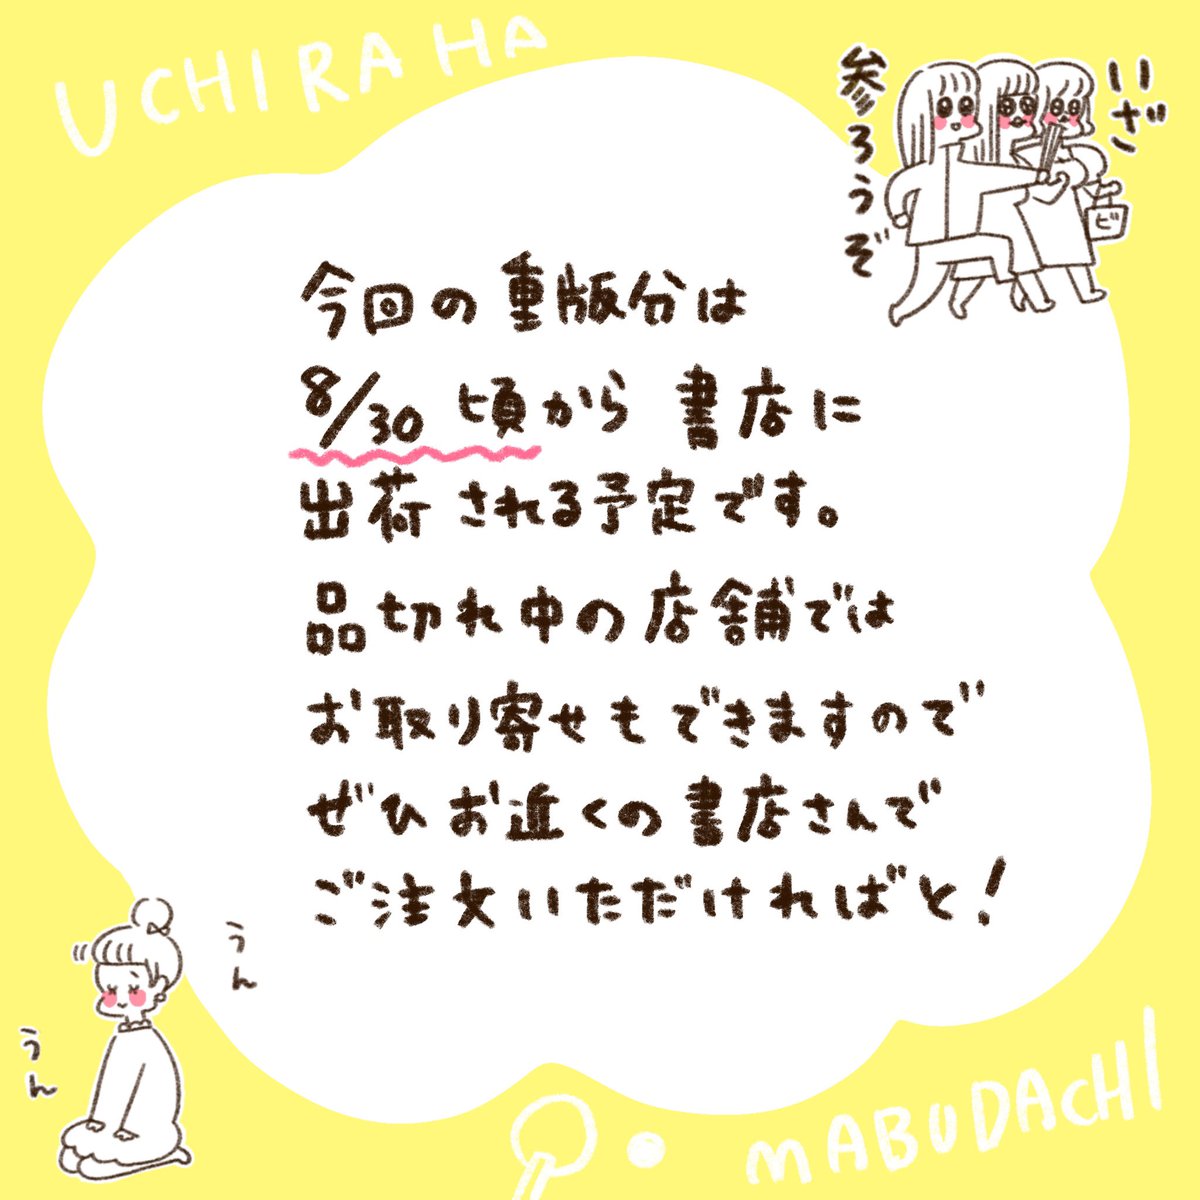 UCHIRAHA
いざ
参ろうぞ
ビ
今回の重版分は
8/30 頃から書店に
出荷される予定です。
品切れ中の店舗では
お取り寄せもできますので
ぜひお近くの書店さんで
ご注文いただければと!
うん
うん
MABUDACHI